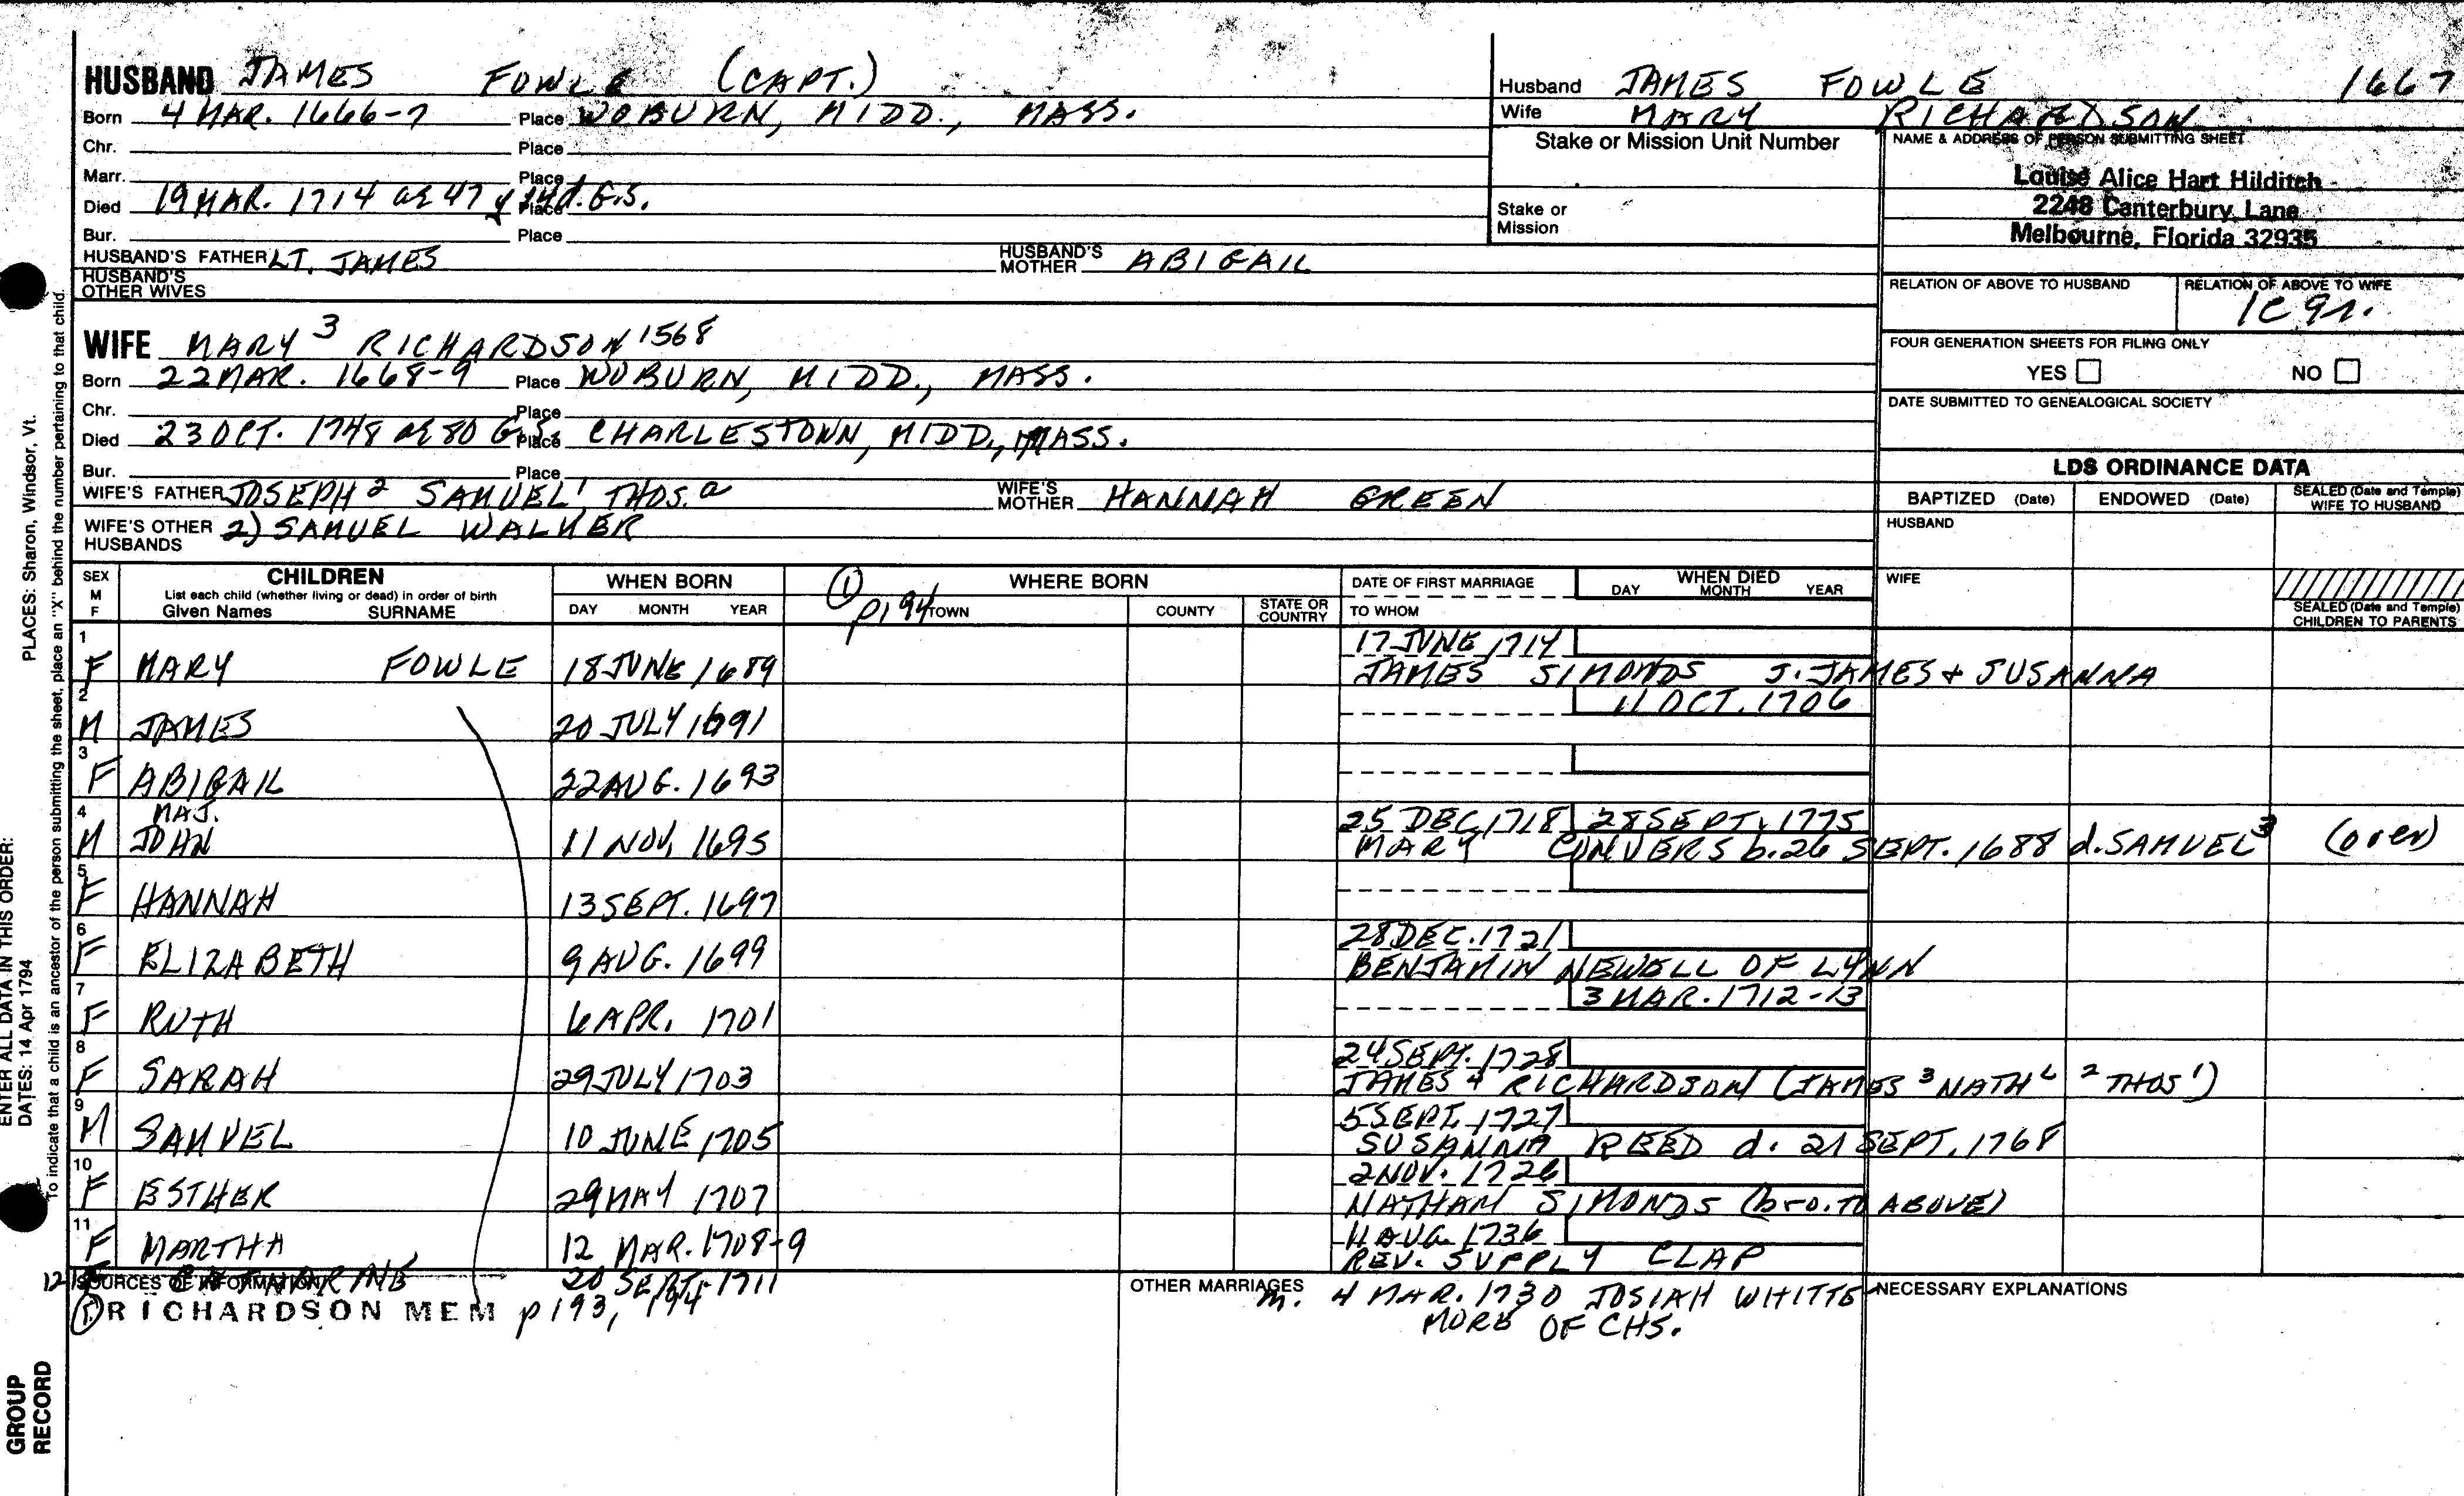 HUSBAND JAMES FOWLE (CAPT.)
Born 4 MAR. 1666-7 Place WOBURN, MIDD., MASS.
Chr. Place
Marr. Place
Died 19 MAR. 1714 ae 47 y 14 d. G.S. Place
Bur. Place
HUSBAND'S FATHER LT. JAMES HUSBAND'S MOTHER ABIGAIL
HUSBAND'S OTHER WIVES
Husband JAMES FOWLE 1667
Wife MARY RICHARDSON
Stake or Mission Unit Number
Stake or Mission
NAME & ADDRESS OF PERSON SUBMITTING SHEET
Louise Alice Hart Hilditch
2248 Canterbury Lane
Melbourne, Florida 32935
RELATION OF ABOVE TO HUSBAND RELATION OF ABOVE TO WIFE
1C 9r.
FOUR GENERATION SHEETS FOR FILING ONLY
YES NO
DATE SUBMITTED TO GENEALOGICAL SOCIETY
WIFE MARY 3 RICHARDSON 1568
Born 22 MAR. 1668-9 Place WOBURN, MIDD., MASS.
Chr. Place
Died 23 OCT. 1748 ae 80 G.S. Place CHARLESTOWN, MIDD., MASS.
Bur. Place
WIFE'S FATHER JOSEPH 2 SAMUEL 1 THOS. a WIFE'S MOTHER HANNAH GREEN
WIFE'S OTHER HUSBANDS 2) SAMUEL WALKER
LDS ORDINANCE DATA
BAPTIZED (Date) ENDOWED (Date) SEALED (Date and Temple) WIFE TO HUSBAND
HUSBAND
WIFE
SEALED (Date and Temple) CHILDREN TO PARENTS
SEX M F CHILDREN List each child (whether living or dead) in order of birth Given Names SURNAME
WHEN BORN DAY MONTH YEAR
① p194 WHERE BORN TOWN COUNTY STATE OR COUNTRY
DATE OF FIRST MARRIAGE TO WHOM WHEN DIED DAY MONTH YEAR
1 F MARY FOWLE 18 JUNE 1689 17 JUNE 1714
JAMES SIMONDS J. JAMES + SUSANNA
2 M JAMES 20 JULY 1691 11 OCT. 1706
3 F ABIGAIL 22 AUG. 1693
4 M MAJ. JOHN 11 NOV. 1695 25 DEC. 1718 28 SEPT. 1775
MARY CONVERS b. 26 SEPT. 1688 d. SAMUEL 3 (over)
5 F HANNAH 13 SEPT. 1697
6 F ELIZABETH 9 AUG. 1699 28 DEC. 1721
BENJAMIN NEWELL OF LYNN
7 F RUTH 6 APR. 1701 3 MAR. 1712-13
8 F SARAH 29 JULY 1703 24 SEPT. 1728
JAMES 4 RICHARDSON (JAMES 3 NATH L 2 THOS 1)
9 M SAMUEL 10 JUNE 1705 5 SEPT. 1727
SUSANNA REED d. 21 SEPT. 1768
10 F ESTHER 29 MAY 1707 2 NOV. 1726
NATHAN SIMONDS (bro. TO ABOVE)
11 F MARTHA 12 MAR. 1708-9 11 AUG. 1736
REV. SUPPLY CLAP
12 F CATHARINE 20 SEPT. 1711
SOURCES OF INFORMATION
① RICHARDSON MEM p 193, 194
OTHER MARRIAGES
m. 4 MAR. 1730 JOSIAH WHITTE
MORE OF CHS.
NECESSARY EXPLANATIONS
ENTER ALL DATA IN THIS ORDER:
DATES: 14 Apr 1794 PLACES: Sharon, Windsor, Vt.
To indicate that a child is an ancestor of the person submitting the sheet, place an "X" behind the number pertaining to that child.
GROUP
RECORD